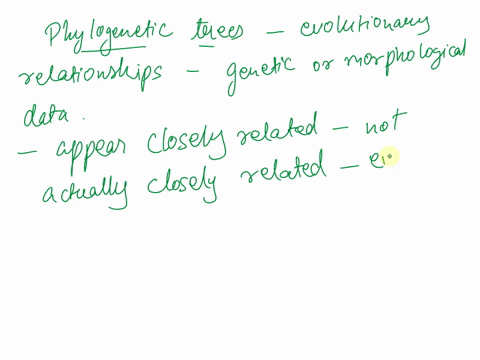 Phylogenetic trees - evolutionary
relationships - genetic or morphological
data.
- appear closely related - not
actually closely related -